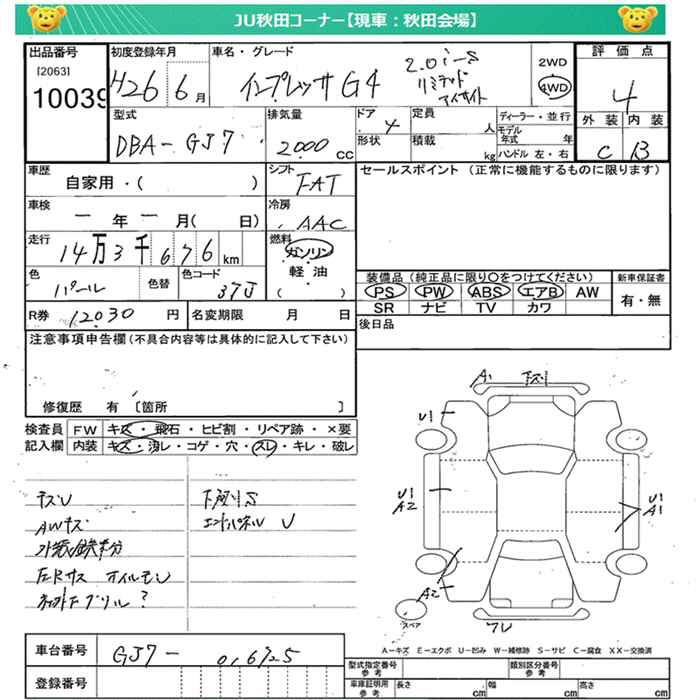 JU秋田コーナー【現車：秋田会場】
出品番号 初度登録年月 車名・グレード 評価点
[2063] 10039 H26 6月 インプレッサG4 2.0i-S リミテッド アイサイト 2WD 4WD 4
型式 排気量 ドア 定員 ディーラー・並行 外装 内装
DBA-GJ7 2000cc 4 人 モデル年式 年 C B
形状 積載 kg ハンドル 左・右
車歴 シフト セールスポイント（正常に機能するものに限ります）
自家用・( ) FAT
車検 冷房
ー年ー月( 日) AAC
走行 燃料
14万3千676km ガソリン 軽油 ( )
色 色替 色コード 装備品（純正品に限り○をつけてください） 新車保証書
パール 37J PS PW ABS エアB AW 有・無
SR ナビ TV カワ
R券 12030円 名変期限 月 日 後日品
注意事項申告欄（不具合内容等は具体的に記入して下さい）
修復歴 有〔箇所 〕
検査員記入欄 FW キズ・飛石・ヒビ割・リペア跡・×要
内装 キズ・汚レ・コゲ・穴・スレ・キレ・破レ
キズU 下廻りS
AWキズ エンドパネルU
左Rサス オイルモレ
A1 下スリ
U1
U1 A2
U1 A1
A2
スペア ワレ
A－キズ E－エクボ U－凹み W－補修跡 S－サビ C－腐食 XX－交換済
車台番号 GJ7- 型式指定番号 参考 類別区分番号 参考
登録番号 車庫証明用 参考 長さ cm 幅 cm 高さ cm